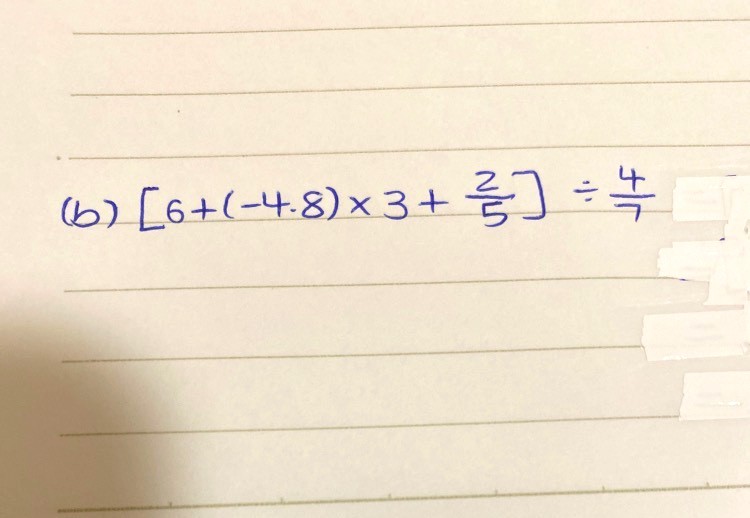 (b) [6+(-4.8) × 3 + 2/5] ÷ 4/7